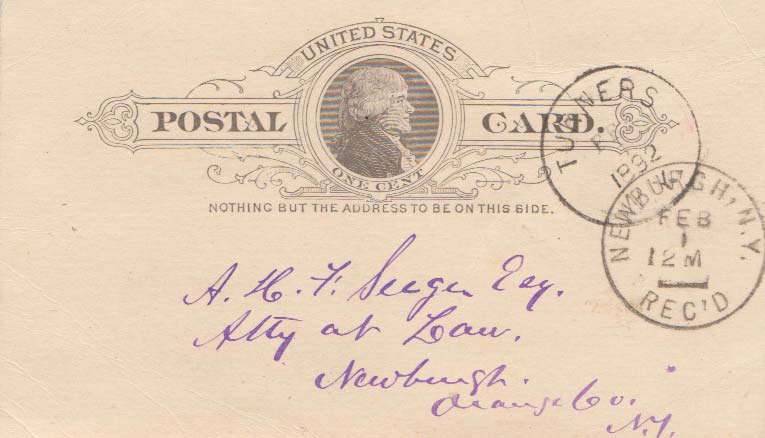 UNITED STATES
POSTAL CARD.
ONE CENT
NOTHING BUT THE ADDRESS TO BE ON THIS SIDE.
TURNERS
1892
NEWBURGH, N.Y.
FEB
1
12 M
REC'D
A. H. F. Seeger Esq.
Atty at Law.
Newburgh.
Orange Co.
N.Y.